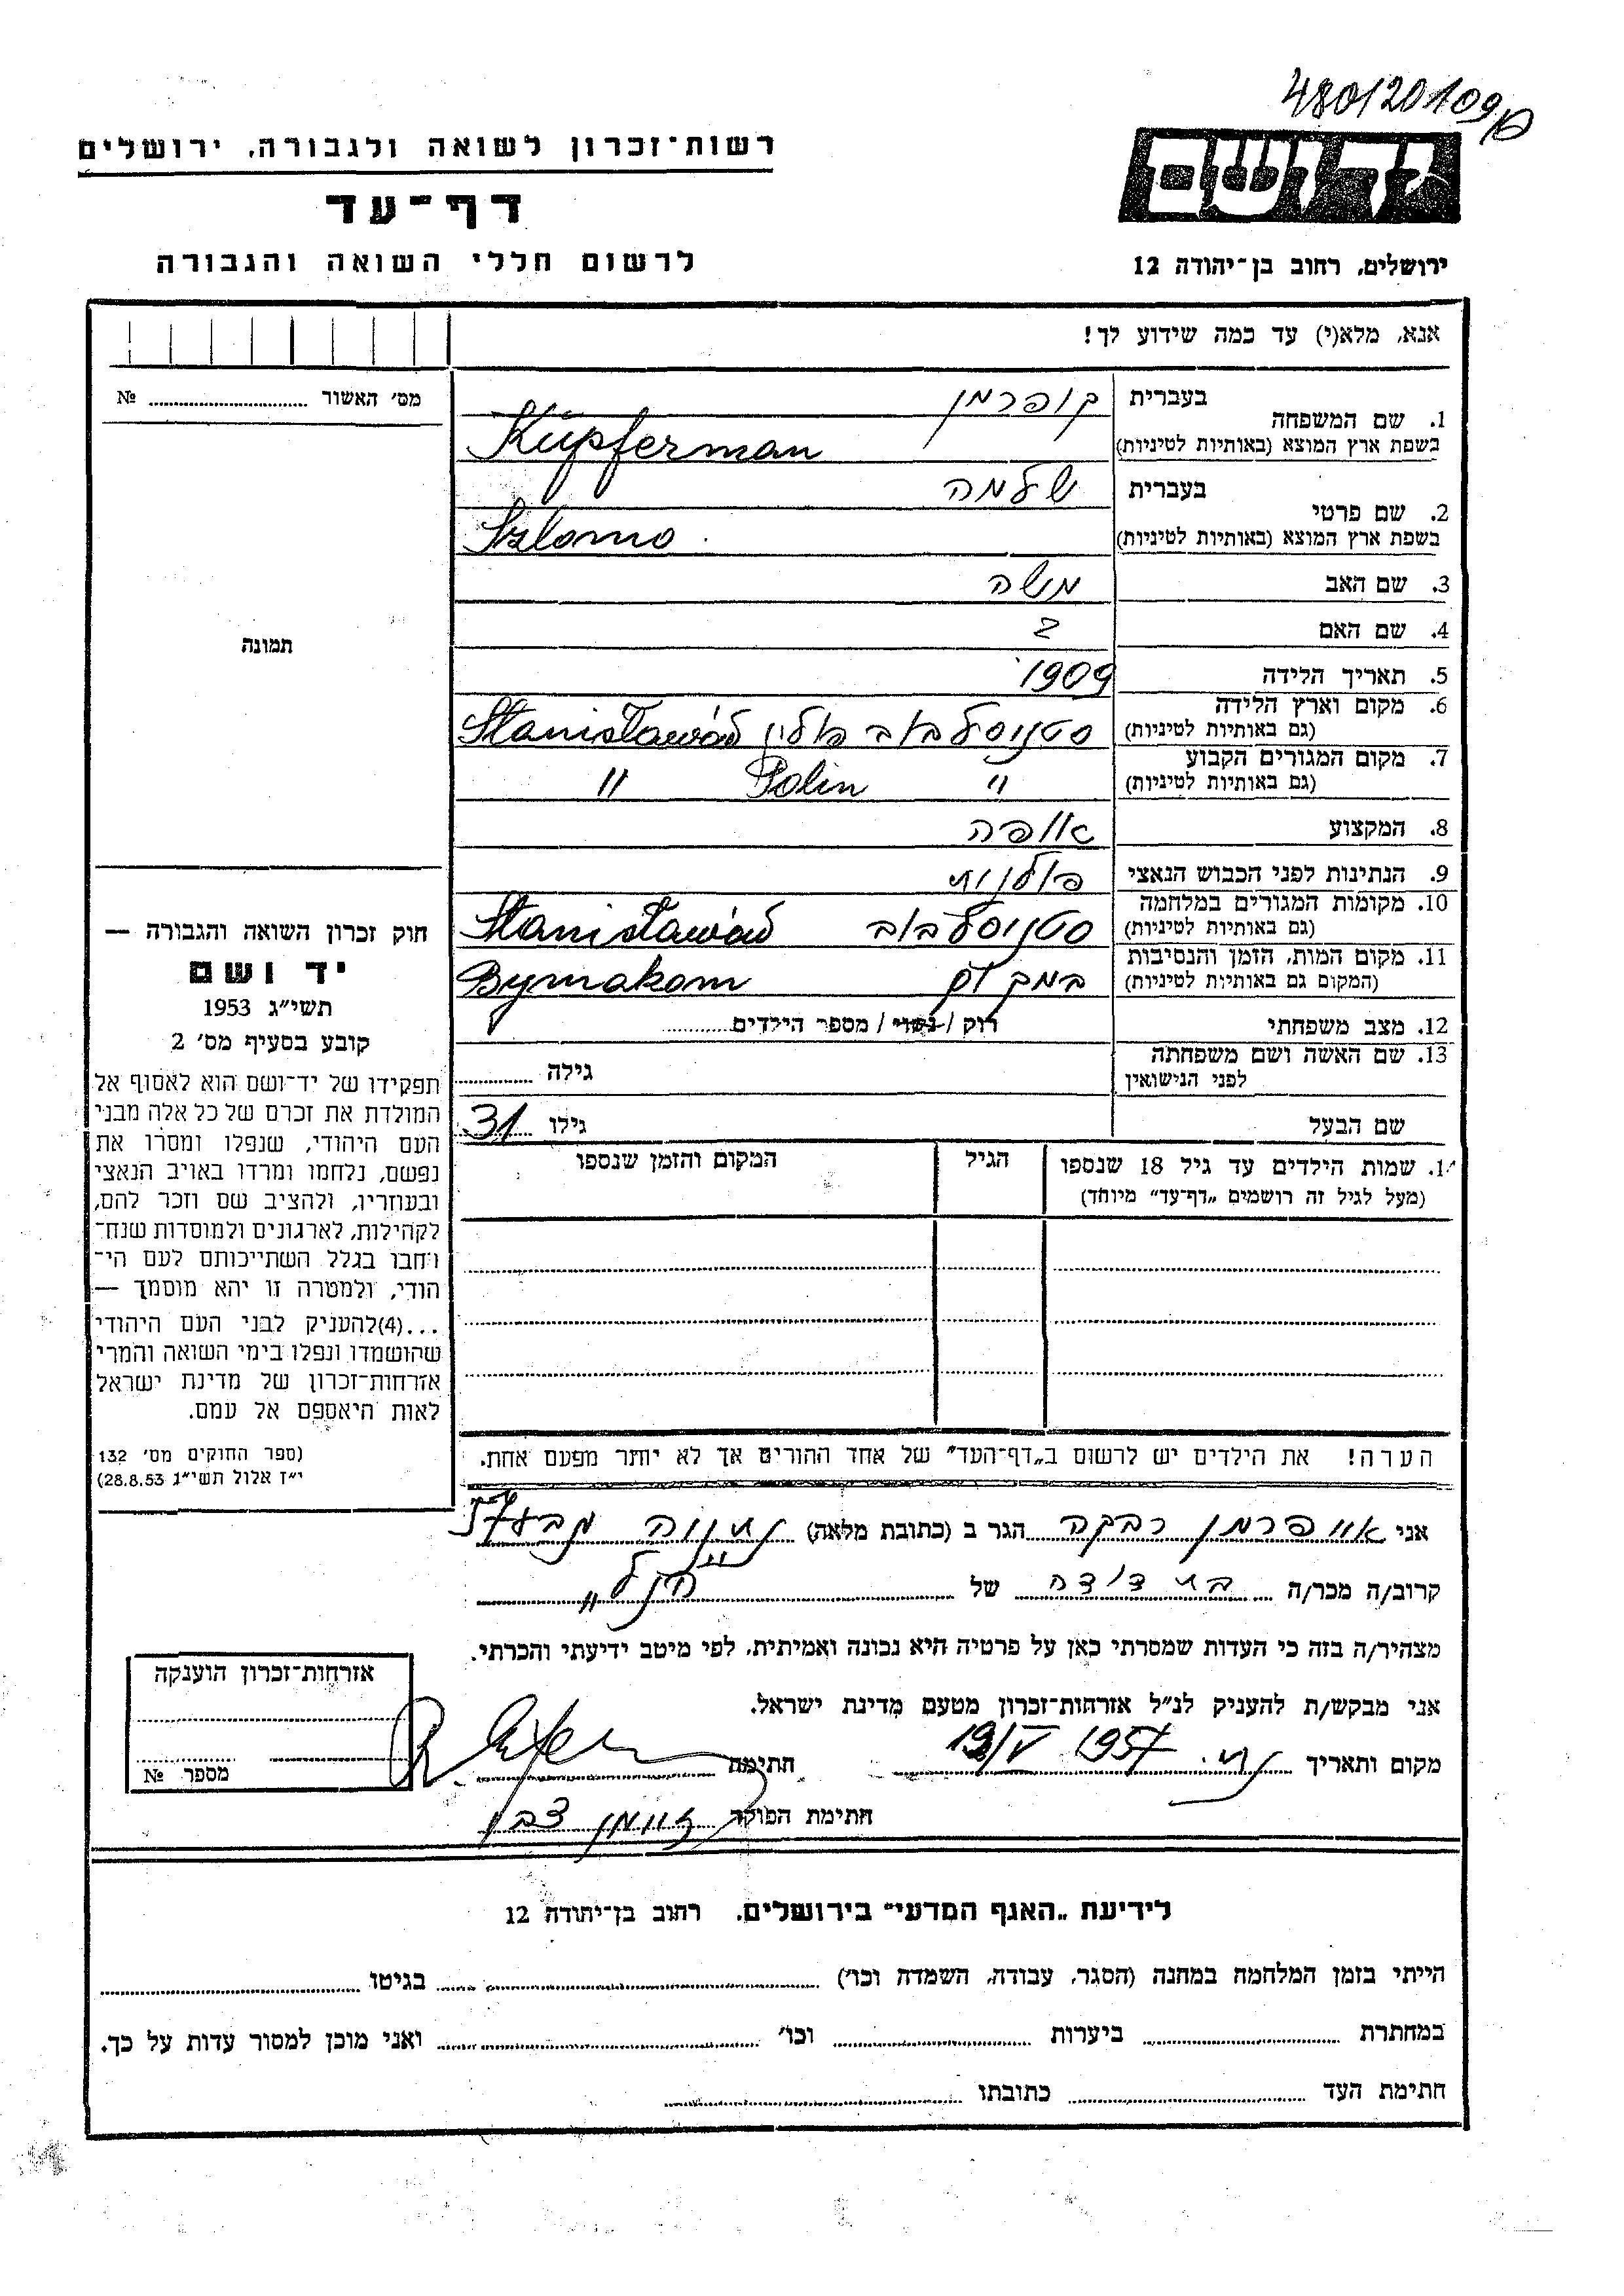 480/20109/D
רשות־זכרון לשואה ולגבורה, ירושלים
דף־עד
לרשום חללי השואה והגבורה
יד ושם
ירושלים, רחוב בן־יהודה 12
אנא, מלא(י) עד כמה שידוע לך!
מס׳ האשור № ........
1. שם המשפחה
בעברית קופרמן
בשפת ארץ המוצא (באותיות לטיניות) Küpferman
2. שם פרטי
בעברית שלמה
בשפת ארץ המוצא (באותיות לטיניות) Szlomo
3. שם האב משה
4. שם האם
5. תאריך הלידה 1909
6. מקום וארץ הלידה
(גם באותיות לטיניות) סטניסלבוב פולין Stanisławów
7. מקום המגורים הקבוע
(גם באותיות לטיניות) " Polin "
8. המקצוע אופה
9. הנתינות לפני הכבוש הנאצי פולנית
10. מקומות המגורים במלחמה
(גם באותיות לטיניות) סטניסלבוב Stanisławów
11. מקום המות, הזמן והנסיבות
(המקום גם באותיות לטיניות) במקום Bymakom
12. מצב משפחתי רווק / נשוי / מספר הילדים........
13. שם האשה ושם משפחתה
לפני הנישואין גילה ........
שם הבעל גילו 31
1. שמות הילדים עד גיל 18 שנספו
(מעל לגיל זה רושמים „דף־עד” מיוחד)
הגיל
המקום והזמן שנספו
הערה! את הילדים יש לרשום ב„דף־העד” של אחד ההורים אך לא יותר מפעם אחת.
תמונה
חוק זכרון השואה והגבורה —
יד ושם
תשי״ג 1953
קובע בסעיף מס׳ 2
תפקידו של יד־ושם הוא לאסוף אל
המולדת את זכרם של כל אלה מבני
העם היהודי, שנפלו ומסרו את
נפשם, נלחמו ומרדו באויב הנאצי
ובעוזריו, ולהציב שם וזכר להם,
לקהילות, לארגונים ולמוסדות שנח־
רבו בגלל השתייכותם לעם הי־
הודי, ולמטרה זו יהא מוסמך —
...(4)להעניק לבני העם היהודי
שהושמדו ונפלו בימי השואה והמרי
אזרחות־זכרון של מדינת ישראל
לאות היאספם אל עמם.
(ספר החוקים מס׳ 132
י״ז אלול תשי״ג 28.8.53)
אני רבקה הגר ב (כתובת מלאה) נתניה
קרוב/ה מכר/ה בת דודה של הנ"ל
מצהיר/ה בזה כי העדות שמסרתי כאן על פרטיה היא נכונה ואמיתית, לפי מיטב ידיעתי והכרתי.
אני מבקש/ת להעניק לנ״ל אזרחות־זכרון מטעם מדינת ישראל.
מקום ותאריך נת. 19/V 1957 חתימה
חתימת הפוקד
אזרחות־זכרון הוענקה
מספר №
לידיעת „האגף המדעי” בירושלים, רחוב בן־יהודה 12
הייתי בזמן המלחמה במחנה (הסגר, עבודה, השמדה וכו׳) ........ בגיטו ........
במחתרת ........ ביערות ........ וכו׳ ........ ואני מוכן למסור עדות על כך.
חתימת העד ........ כתובתו ........